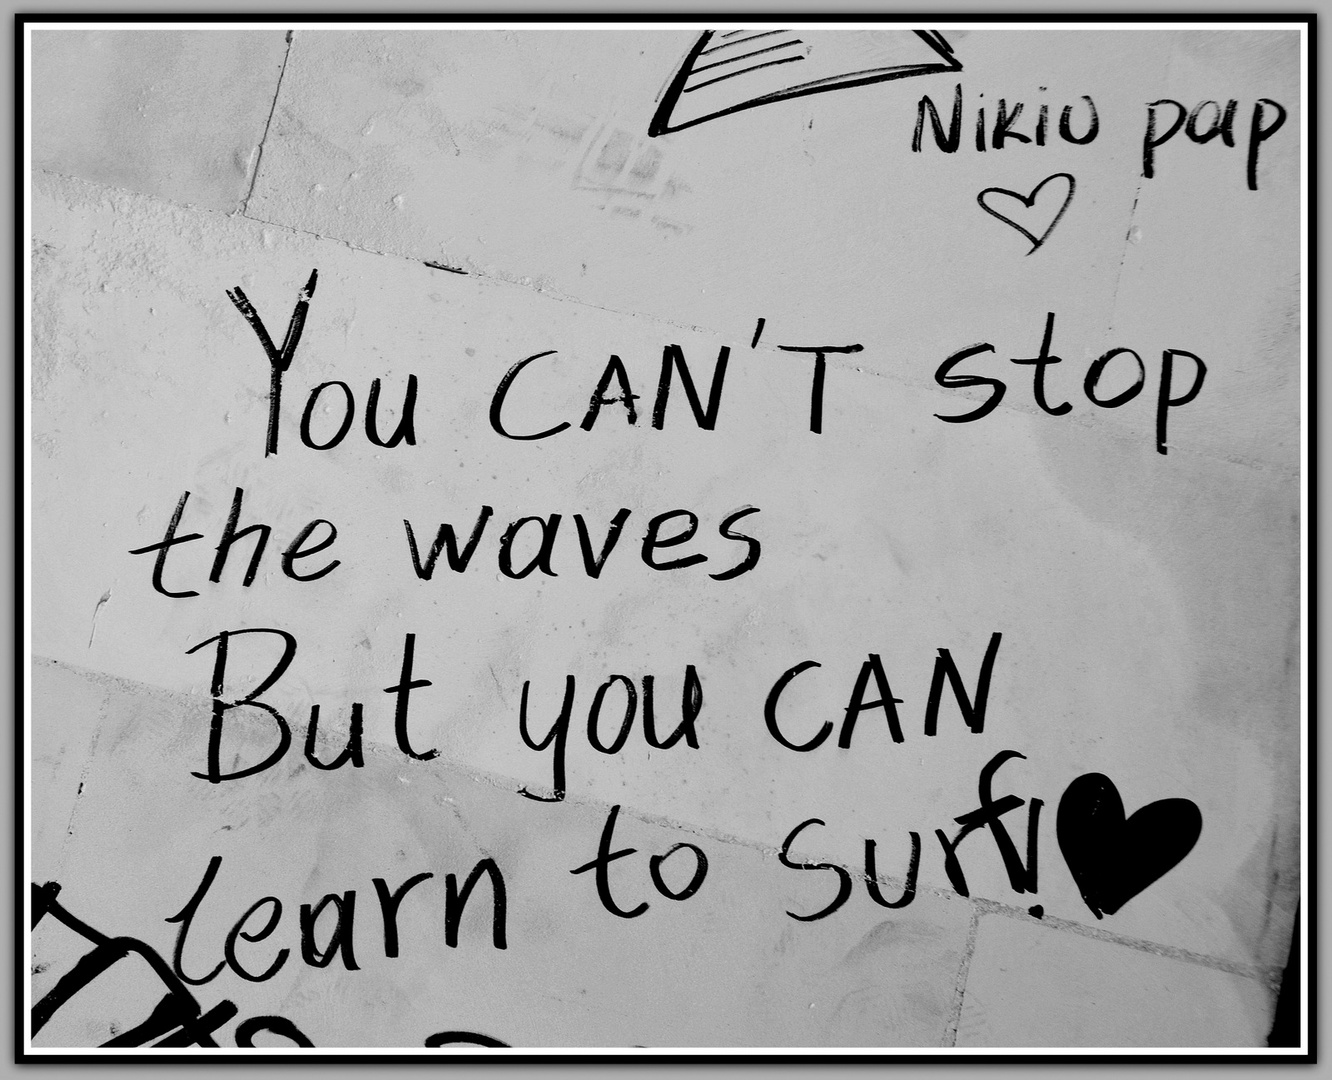 Nikiu pap
You CAN'T stop
the waves
But you CAN
learn to surf!